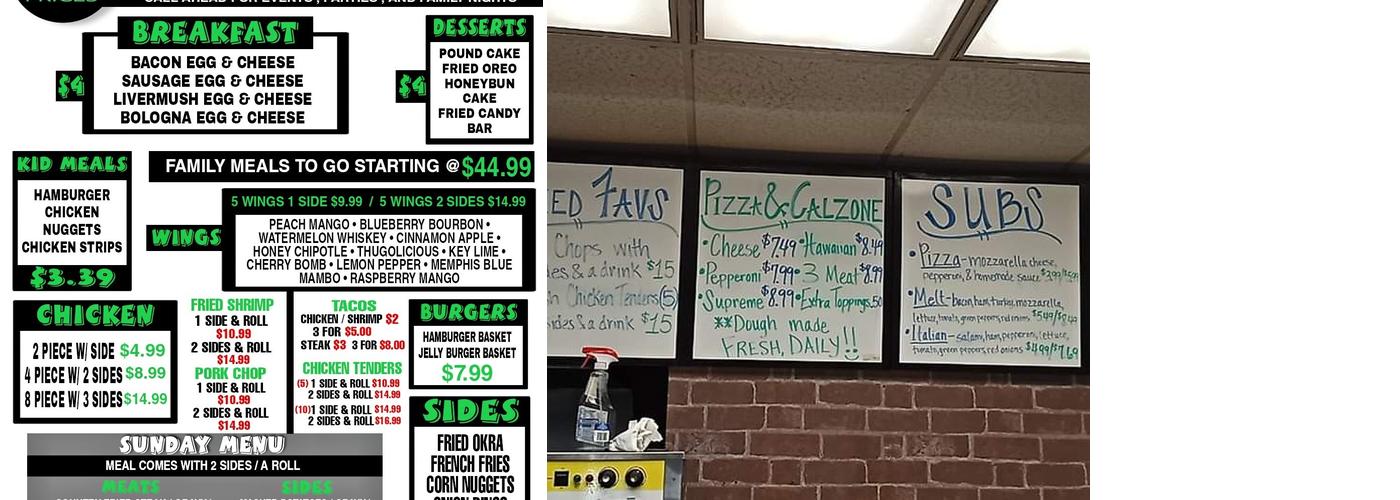 CALL AHEAD FOR EVENTS, PARTIES, AND FAMILY NIGHTS
BREAKFAST
$4
BACON EGG & CHEESE
SAUSAGE EGG & CHEESE
LIVERMUSH EGG & CHEESE
BOLOGNA EGG & CHEESE
DESSERTS
$4
POUND CAKE
FRIED OREO
HONEYBUN
CAKE
FRIED CANDY
BAR
KID MEALS
HAMBURGER
CHICKEN
NUGGETS
CHICKEN STRIPS
$3.39
FAMILY MEALS TO GO STARTING @ $44.99
5 WINGS 1 SIDE $9.99 / 5 WINGS 2 SIDES $14.99
WINGS
PEACH MANGO • BLUEBERRY BOURBON •
WATERMELON WHISKEY • CINNAMON APPLE •
HONEY CHIPOTLE • THUGOLICIOUS • KEY LIME •
CHERRY BOMB • LEMON PEPPER • MEMPHIS BLUE
MAMBO • RASPBERRY MANGO
CHICKEN
2 PIECE W/ SIDE $4.99
4 PIECE W/ 2 SIDES $8.99
8 PIECE W/ 3 SIDES $14.99
FRIED SHRIMP
1 SIDE & ROLL
$10.99
2 SIDES & ROLL
$14.99
PORK CHOP
1 SIDE & ROLL
$10.99
2 SIDES & ROLL
$14.99
TACOS
CHICKEN / SHRIMP $2
3 FOR $5.00
STEAK $3 3 FOR $8.00
CHICKEN TENDERS
(5) 1 SIDE & ROLL $10.99
2 SIDES & ROLL $14.99
(10) 1 SIDE & ROLL $14.99
2 SIDES & ROLL $16.99
BURGERS
HAMBURGER BASKET
JELLY BURGER BASKET
$7.99
SIDES
FRIED OKRA
FRENCH FRIES
CORN NUGGETS
SUNDAY MENU
MEAL COMES WITH 2 SIDES / A ROLL
MEATS
SIDES
ED FAVS
Chops with
es & a drink $15
n Chicken Tenders (5)
ides & a drink $15
PIZZA & CALZONE
• Cheese $7.49 • Hawaiian $8.49
• Pepperoni $7.99 • 3 Meat $8.99
• Supreme $8.99 • Extra Toppings .50
**Dough made
FRESH, DAILY!!
SUBS
• Pizza - mozzarella cheese,
pepperoni, & homemade sauce
• Melt - bacon, ham, turkey, mozzarella,
lettuce, tomato, green peppers, red onions $5.49/
• Italian - salami, ham, pepperoni, lettuce,
tomato, green peppers, red onions $4.99/$7.69